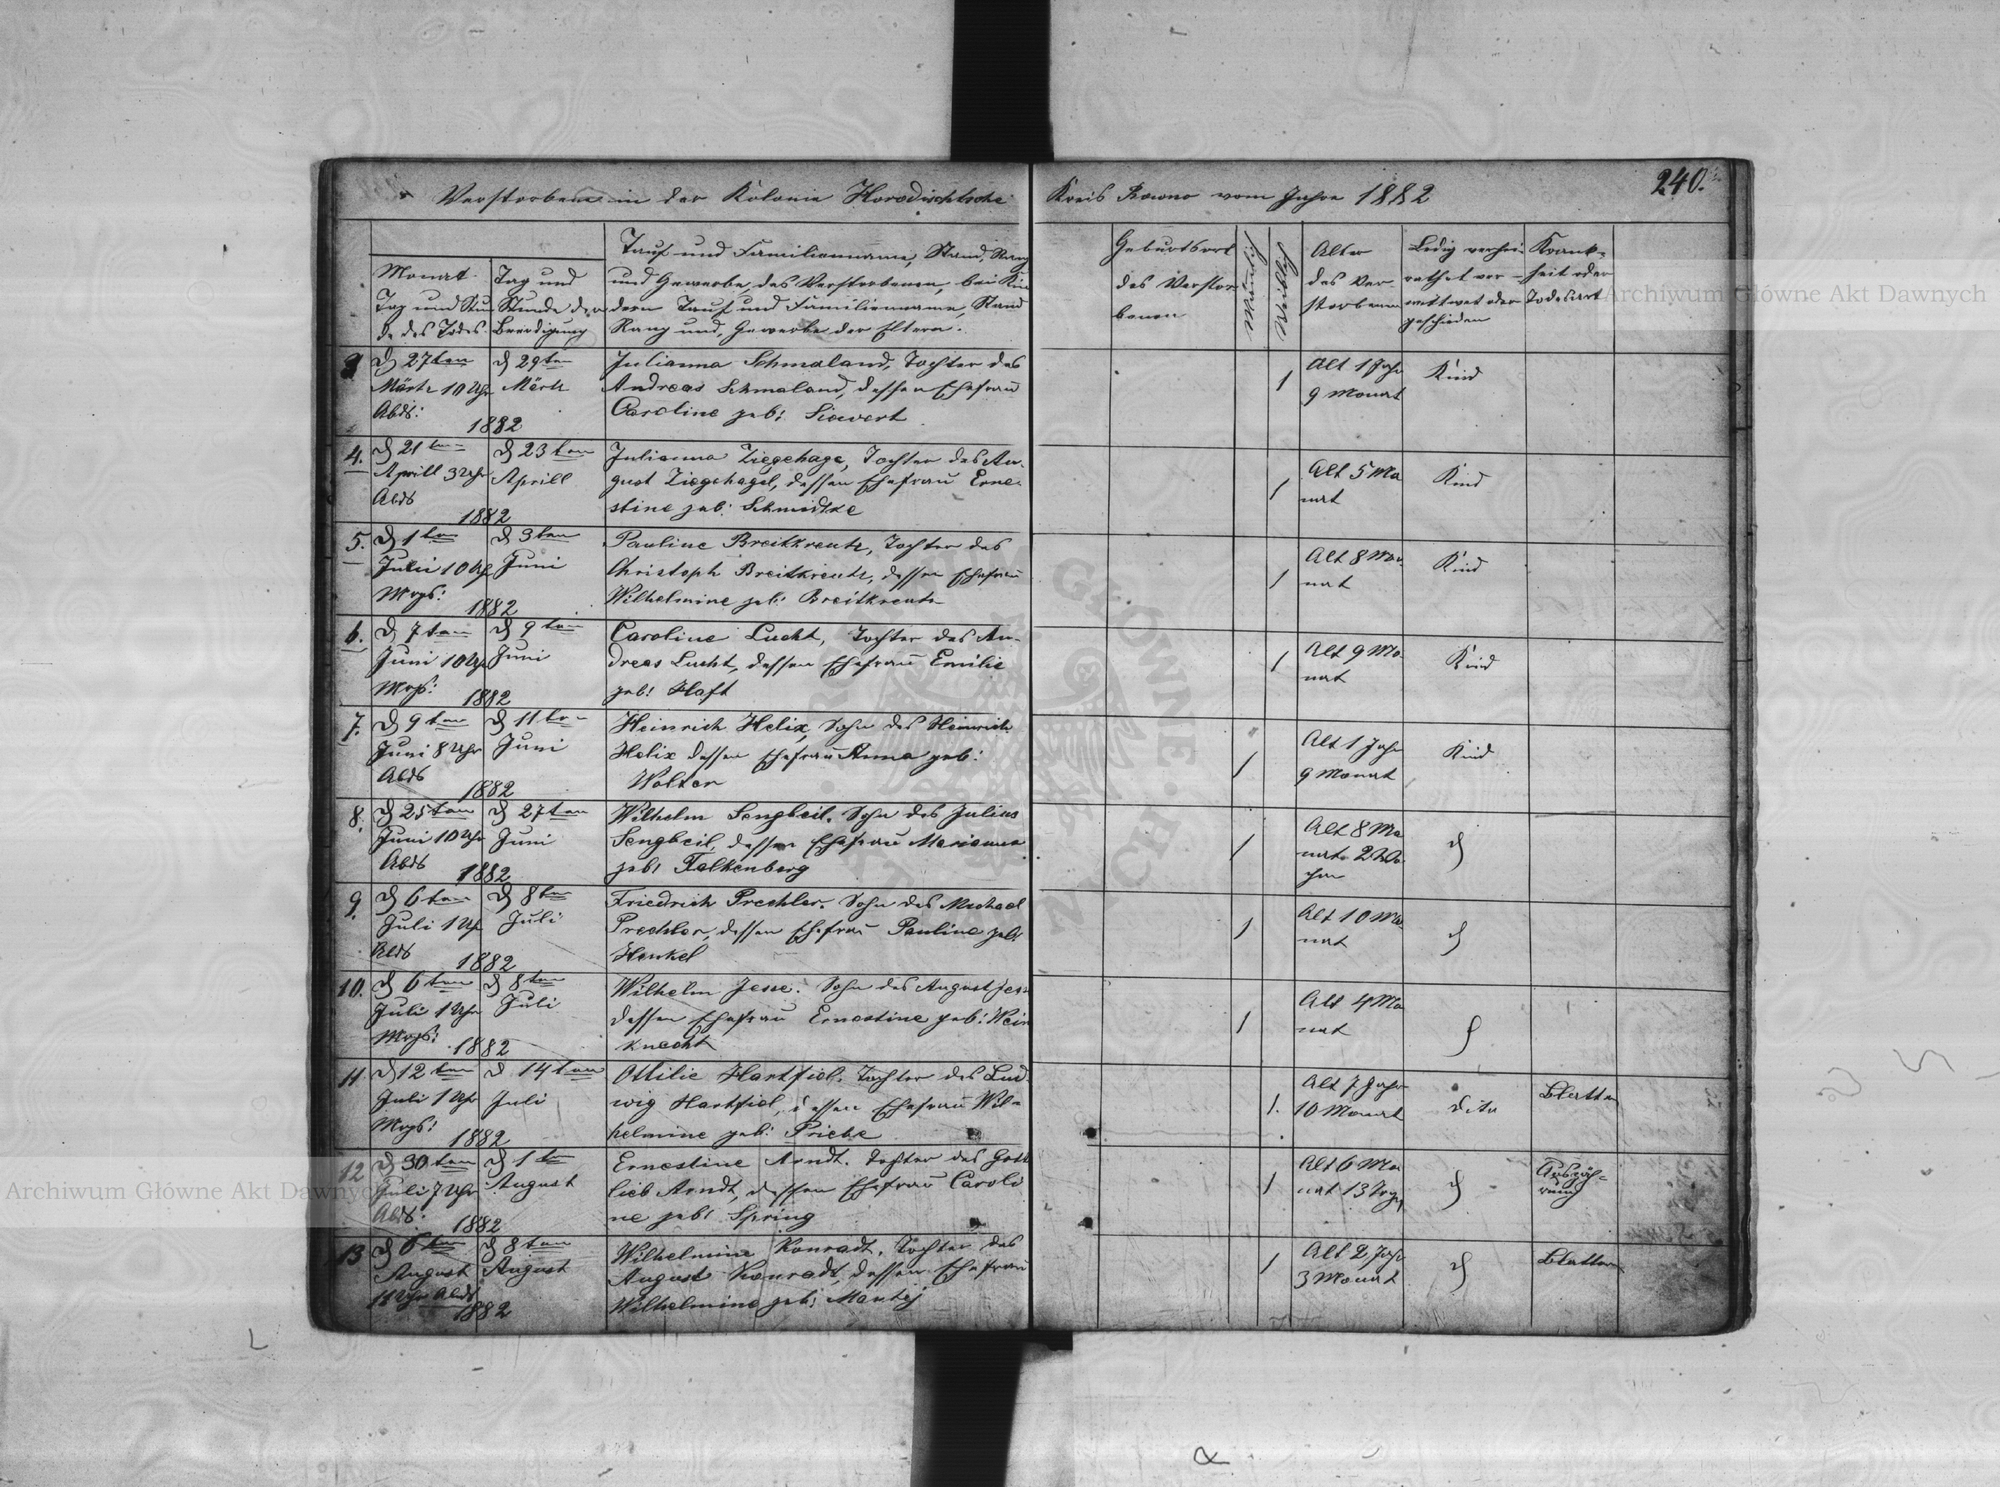 Verstorbene in der Kolonie Horodischtsche Kreis Rowno vom Jahre 1882
240.
Monat
Tag und Stun
de des Todes
Tag und
Stunde der
Beerdigung
Tauf und Familienname, Stand, Rang
und Gewerbe des Verstorbenen, bei Kin
dern Tauf und Familienname, Stand
Rang und Gewerbe der Eltern.
Geburtsort
des Verstor
benen
Alter
des Ver
storbenen
Ledig verhei
rathet ver-
wittwet oder
geschieden
Krank-
heit oder
Todesart
3
d 27ten
Märtz 10 Uhr
Abds:
d 29ten
Märtz
1882
Julianna Schmaland, Tochter des
Andreas Schmaland, dessen Ehefrau
Caroline geb: Siewert
1
Alt 1 Jahr
9 Monat
Kind
4.
d 21ten
Aprill 3 Uhr
Abds
d 23ten
Aprill
1882
Julianna Ziegehage, Tochter des Au-
gust Ziegehagel, dessen Ehefrau Erne-
stine geb: Schmidtke
1
Alt 5 Mo
nat
Kind
5.
d 1ten
Juni 10 Uh
Mrgs:
d 3ten
Juni
1882
Pauline Breitkreutz, Tochter des
Christoph Breitkreutz, dessen Ehefrau
Wilhelmine geb: Breitkreutz
1
Alt 8 Mo
nat
Kind
6.
d 7ten
Juni 10 Uhr
Mrgs:
d 9ten
Juni
1882
Caroline Lucht, Tochter des An-
dreas Lucht, dessen Ehefrau Emilie
geb: Haft
1
Alt 9 Mo
nat
Kind
7.
d 9ten
Juni 8 Uhr
Abds
d 11ten
Juni
1882
Heinrich Helix, Sohn des Heinrich
Helix dessen Ehefrau Anna geb:
Wolter
1
Alt 1 Jahr
9 Monat
Kind
8.
d 25ten
Juni 10 Uhr
Abds
d 27ten
Juni
1882
Wilhelm Sengbeil. Sohn des Julius
Sengbeil, dessen Ehefrau Marianna
geb: Falkenberg
1
Alt 8 Mo
nate 2 Wo
chen
d
9.
d 6ten
Juli 1 Uh
Abds
d 8ten
Juli
1882
Friedrich Prechler. Sohn des Michael
Prechler, dessen Ehefrau Pauline geb:
Henkel
1
Alt 10 Mo
nat
d
10.
d 6ten
Juli 1 Uhr
Mrgs:
d 8ten
Juli
1882
Wilhelm Jesse. Sohn des August Jess
dessen Ehefrau Ernestine geb: Wein
knecht
1
Alt 4 Mo
nat
d
11.
d 12ten
Juli 1 Uhr
Mrgs:
d 14ten
Juli
1882
Ottilie Hartfiel. Tochter des Lud
wig Hartfiel, dessen Ehefrau Wil-
helmine geb: Priebe
1.
Alt 7 Jahr
10 Monat
dito
Blattern
12
d 30ten
Juli 7 Uhr
Abds:
d 1ten
August
1882
Ernestine Arndt. Tochter des Gott
lieb Arndt, dessen Ehefrau Caroli
ne geb: Spring
1
Alt 6 Mo
nat 13 Tage
d
Auszäh-
rung
13
d 6ten
August
11 Uhr Abds
d 8ten
August
1882
Wilhelmine Konradt. Tochter des
August Konradt, dessen Ehefrau
Wilhelmine geb: Mantej
1
Alt 2 Jahr
3 Monat
d
Blattern
Archiwum Główne Akt Dawnych
Archiwum Główne Akt Dawnych